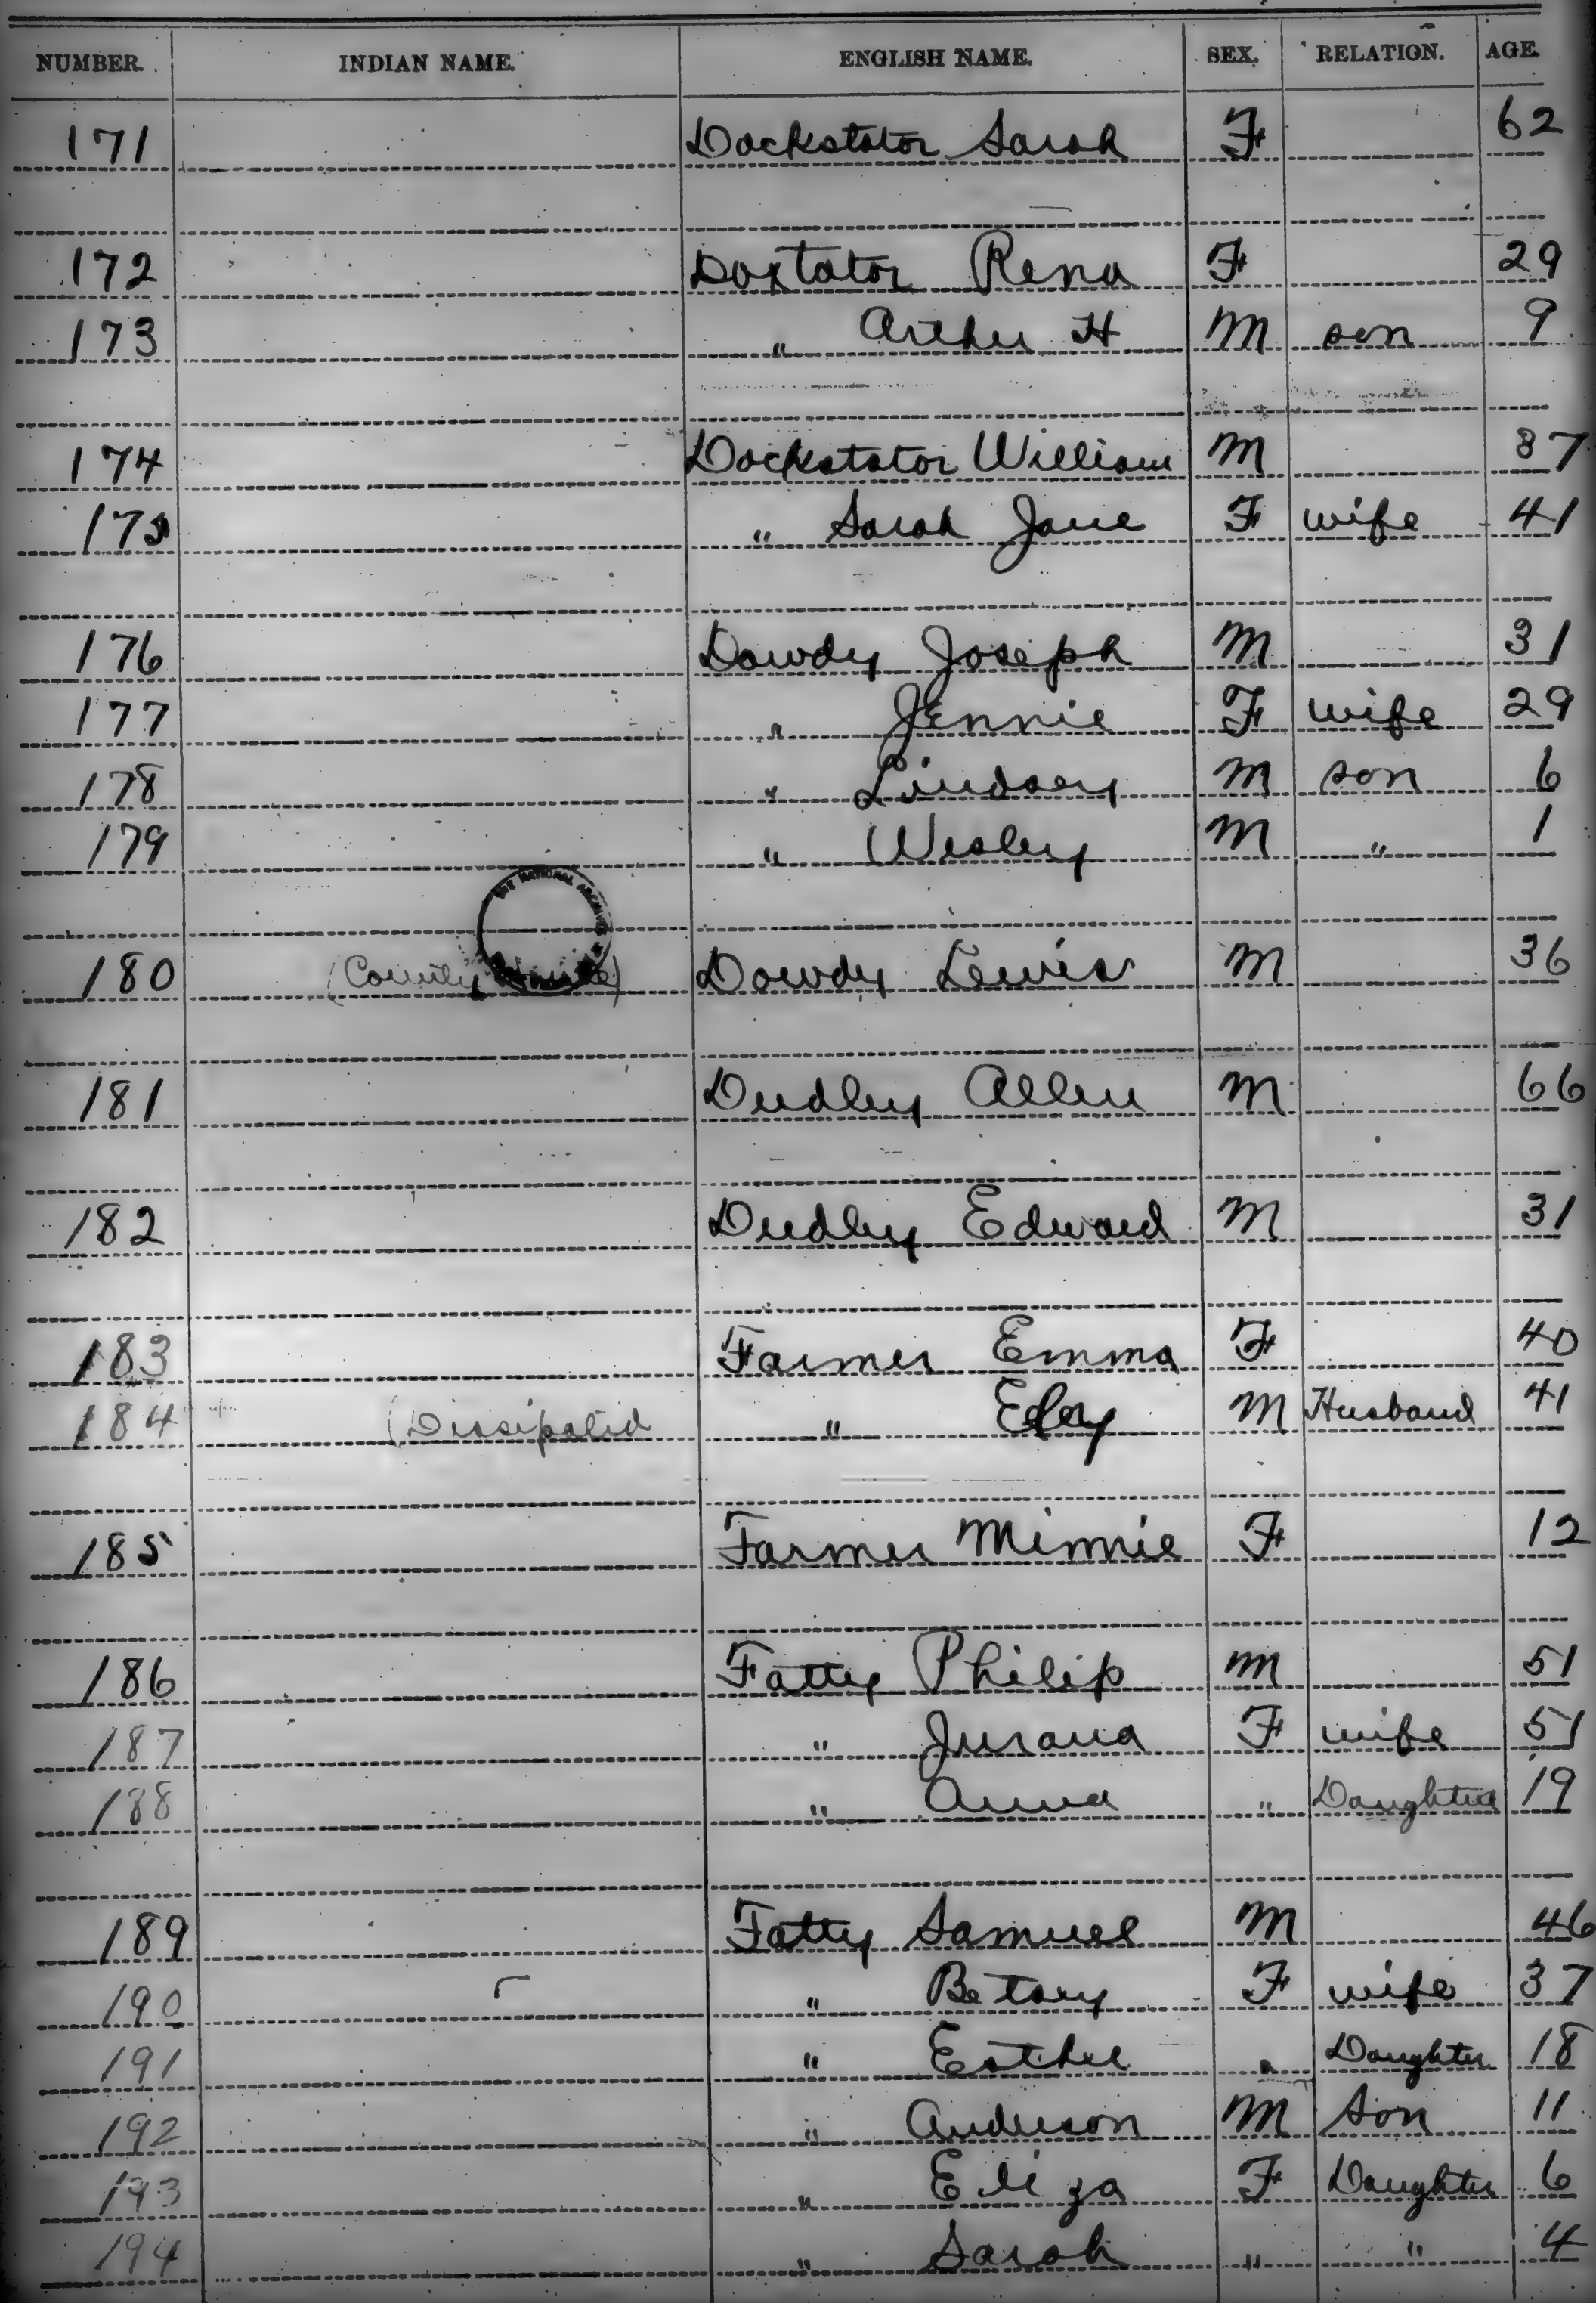 NUMBER. INDIAN NAME. ENGLISH NAME. SEX. RELATION. AGE.
171 Dockstator Sarah F 62
172 Doxtator Rena F 29
173 " Arthur H M son 9
174 Dockstator William M 87
175 " Sarah Jane F wife 41
176 Dowdy Joseph M 31
177 " Jennie F wife 29
178 " Lindsey M son 6
179 " Wesley M " 1
THE NATIONAL ARCHIVES
180 (County Dowdy Lewis M 36
181 Dudley Allen M 66
182 Dudley Edward M 31
183 Farmer Emma F 40
184 (Dissipated " M Husband 41
185 Farmer Minnie F 12
186 Fatty Philip M 51
187 " F wife 51
188 " Anna " Daughter 19
189 Fatty Samuel M 46
190 " Betsey F wife 37
191 " Esther " Daughter 18
192 " Anderson M Son 11
193 " Eliza F Daughter 6
194 " Sarah " " 4